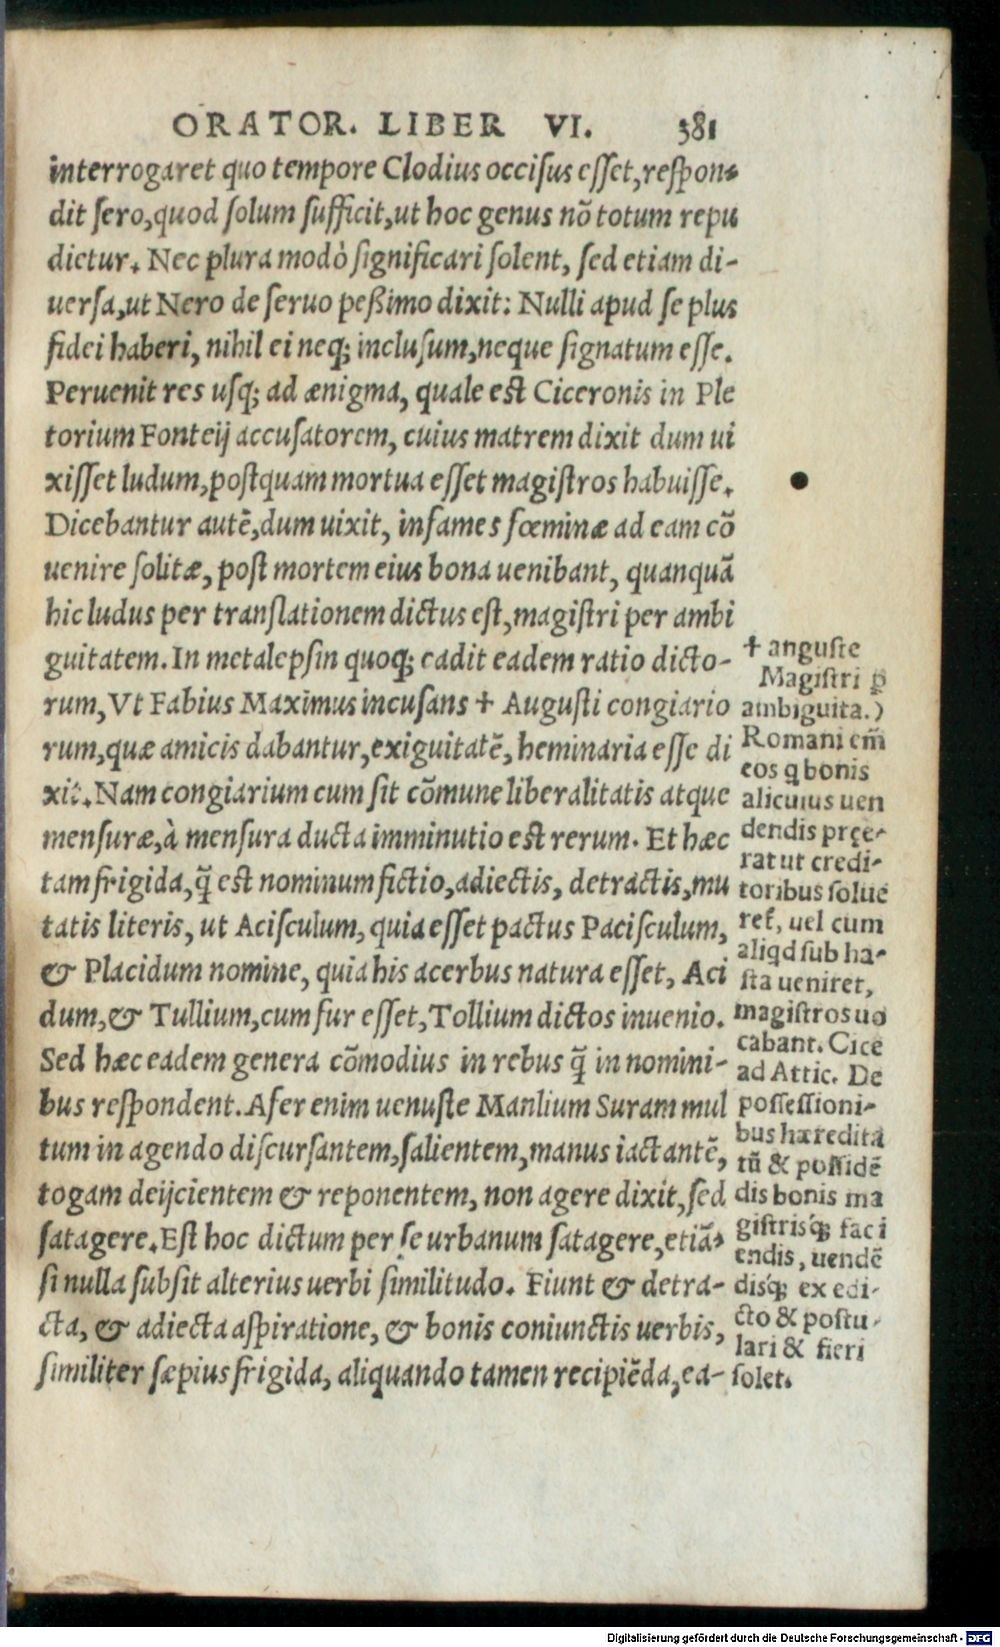 ORATOR. LIBER VI. 381
interrogaret quo tempore Clodius occisus esset, respon-
dit sero, quod solum sufficit, ut hoc genus nõ totum repu
dietur. Nec plura modò significari solent, sed etiam di-
uersa, ut Nero de seruo peßimo dixit: Nulli apud se plus
fidei haberi, nihil ei neq; inclusum, neque signatum esse.
Peruenit res usq; ad ænigma, quale est Ciceronis in Ple
torium Fonteij accusatorem, cuius matrem dixit dum ui
xisset ludum, postquam mortua esset magistros habuisse.
Dicebantur autẽ, dum uixit, infames fœminæ ad eam cõ
uenire solitæ, post mortem eius bona uenibant, quanquã
hic ludus per translationem dictus est, magistri per ambi
guitatem. In metalepsin quoq; cadit eadem ratio dicto-
rum, Vt Fabius Maximus incusans + Augusti congiario
rum, quæ amicis dabantur, exiguitatẽ, heminaria esse di
xit. Nam congiarium cum sit cõmune liberalitatis atque
mensuræ, à mensura ducta imminutio est rerum. Et hæc
tam frigida, q̃ est nominum fictio, adiectis, detractis, mu
tatis literis, ut Acisculum, quia esset pactus Pacisculum,
& Placidum nomine, quia his acerbus natura esset, Aci
dum, & Tullium, cum fur esset, Tollium dictos inuenio.
Sed hæc eadem genera cõmodius in rebus q̃ in nomini-
bus respondent. Afer enim uenuste Manlium Suram mul
tum in agendo discursantem, salientem, manus iactantẽ,
togam deijcientem & reponentem, non agere dixit, sed
satagere. Est hoc dictum per se urbanum satagere, etiã-
si nulla subsit alterius uerbi similitudo. Fiunt & detra-
cta, & adiecta aspiratione, & bonis coniunctis uerbis,
similiter sæpius frigida, aliquando tamen recipiẽda, ea-
+ anguste
Magistri ꝑ
ambiguita.)
Romani em̃
eos q bonis
alicuius uen
dendis pręe-
rat ut credi-
toribus solue
ret, uel cum
aliqd sub ha-
sta ueniret,
magistros uo
cabant. Cice
ad Attic. De
possessioni-
bus hæredita
tũ & possidẽ
dis bonis ma
gistrisq; faci
endis, uendẽ
disq; ex edi-
cto & postu-
lari & fieri
solet.
Digitalisierung gefördert durch die Deutsche Forschungsgemeinschaft - DFG